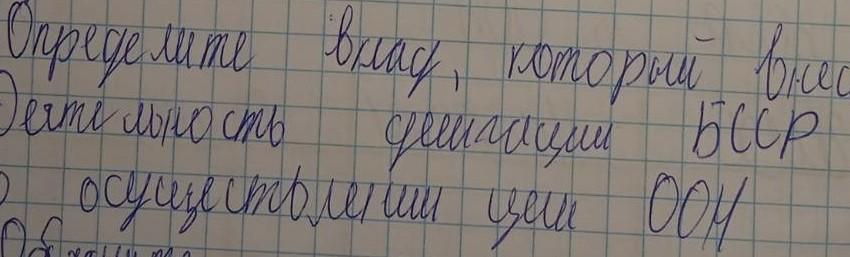 Определите вклад, который внес
Деятельность делегации БССР
осуществлении цели ООН